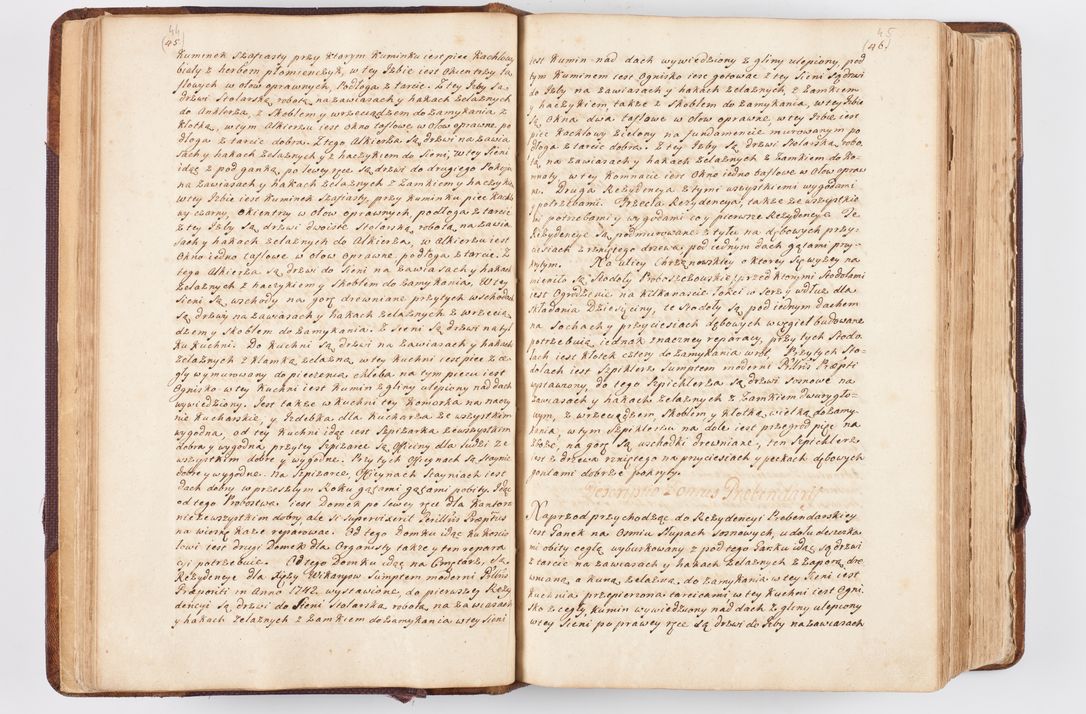 44
(45)
Kuminek Szafiasty przy ktorym Kuminku iest piec Kachlowy
biały z herbem płomieńczyk, w tey Izbie iest Okien trzy ta
flowych w ołow oprawnych, Podłoga z tarcic. Z tey Izby są
drzwi Stolarską robotą na zawiasach y hakach żelaznych
do Alkierza, z Skoblem y wrzeciądzem do zamykania z
Klotką, w tym Alkierzu iest Okno taflowe w Ołow oprawne, po
dłoga z tarcic dobra. Z tego Alkierza są drzwi na zawia
sach y hakach żelaznych y z haczykiem do Sieni, w tey Sieni
idąc z pod ganku po lewy ręce są drzwi do drugiego Pokoiu
na zawiasach y hakach żelaznych z zamkiem y haczykiem
w tey Izbie iest Kuminek Szafiasty, przy Kuminku piec Kachlo
wy czarny, Okien trzy w ołow oprawnych, podłoga z tarcic
z tey Izby są drzwi dwoiste Stolarską robotą na zawia
sach y hakach żelaznych do Alkierza, w Alkierzu iest
Okno iedno taflowe w Ołow oprawne, podłoga z tarcic. Z
tego Alkierza są drzwi do Sieni na zawiasach y hakach
żelaznych z haczykiem y Skoblem do zamykania. W tey
Sieni są wschody na gorę drewniane przy tych wschodach
są drzwi na zawiasach y hakach żelaznych z wrzecią
dzem y Skoblem do zamykania. Z Sieni są drzwi na tył
ku Kuchni. Do Kuchni są drzwi na zawiasach y hakach
żelaznych z Klamką żelazną w tey Kuchni iest piec z ce
gły wymurowany do pieczenia chleba na tym piecu iest
Ognisko w tey Kuchni iest Kumin z gliny ulepiony nad dach
wywiedziony. Jest także w Kuchni tey Komorka na naczy
nie Kucharskie, y Izdebka dla Kucharza ze wszystkim
wygodna, od tey Kuchni idąc iest Szpiżarka ze wszystkim
dobra y wygodna przy tey Szpiżarce są Officiny dla ludzi ze
wszystkim dobre y wygodne. Przy tych Officynach są Staynie
dobre y wygodne. Na Szpiżarce, Officynach Stayniach iest
dach dobry w przeszłym Roku gątami gątami pobity. Idąc
od tego Probostwa iest Domek po lewey ręce dla Kantora
nie ze wszystkim dobry, ale si supervixerit Perillris Præptus
na wiosnę każe reparować. Od tego Domku idąc ku Kościo
łowi iest drugi Domek dla Organisty także y ten repara
cyi potrzebuie. Od tego Domku idąc na Cmętarz, są
Rezydencye dla Xięży Wikaryow Sumptem moderni Pillris
Præpositi in Anno 1742. wystawione, do pierwszej Rezy
dencyi są drzwi do Sieni Stolarską robotą, na zawiasach
y hakach żelaznych z zamkiem do zamykania w tey Sieni
45
(46)
iest Kumin nad dach wywiedziony z gliny ulepiony, pod
tym Kuminem iest Ognisko iest gotować z tey Sieni są drzwi
do Izby na zawiasach y hakach żelaznych, z zamkiem
y haczykiem, także z Skoblem do zamykania, w tey Izbie
są Okna dwa taflowe w ołow oprawne, w tey Izbie iest
piec Kachlowy zielony na fundamencie murowanym po
dłoga z tarcic dobra. Z tey Izby są drzwi Stolarską robo
tą na zawiasach y hakach żelaznych z zamkiem do Ko
mnaty, w tey Komnacie iest Okno iedno taflowe w Ołow opraw
ne. Druga Rezydencya z tymi wszystkiemi wygodami
y potrzebami. Trzecia Rezydencya, także ze wszystkie
mi potrzebami y wygodami co y pierwsze Rezydencye. Te
Rezydencye są podmurowane z tyłu na dębowych przy-
ciesiach z rzniętego drzewa, pod iednym dach gątami przy-
krytym. Na ulicy Chrzanowskiey o ktorey się wyżey na
mieniło są Stodoły Proboszczowskie, przed ktorymi Stodołami
iest Ogrodzenie na Kilkanascie łokci w szerz y wdłuż dla
składania Dziesięciny, te Stodoły są, pod iednym dachem
na Sochach y przyciesiach dębowych w węgieł budowane
potrzebuią iednak znaczney reparacyi, przy tych Stodo
łach iest Klotek cztery do zamykania wrot, Przy tych Sto-
dołach iest Szpiklerz Sumptem moderni Pillris Præpti
wystawiony, do tego Szpichlerza są drzwi Sosnowe na
zawiasach y hakach żelaznych z zamkiem dwurygło-
wym, z wrzeciądzem Skoblem y Klotką wielką do zamy-
kania, w tym Szpiklerzu na dole iest przegrod pięć na
zboże, na gorę są wschodki drewniane, ten Szpichlerz
iest z drzewa rzniętego na przyciesiach y peckach dębowych
gontami dobrze pokryty.
Descriptio Domus Prebendarii
Naprzod przychodząc do Rezydencyi Prebendarskiey
iest Ganek na Osmiu Słupach Sosnowych, u dołu deszczka
mi obity cegłą wybrukowany z pod tego Ganku idąc są drzwi
z tarcic na zawiasach y hakach żelaznych z zaporą dre
wnianą a Kuną żelazną do zamykania w tey Sieni iest
Kuchnia przepierzona tarcicami w tey Kuchni iest Ogni
sko z cegły, Kumin wywiedziony nad dach z gliny ulepiony
w tey Sieni po prawey ręce są drzwi do Izby na zawiasach